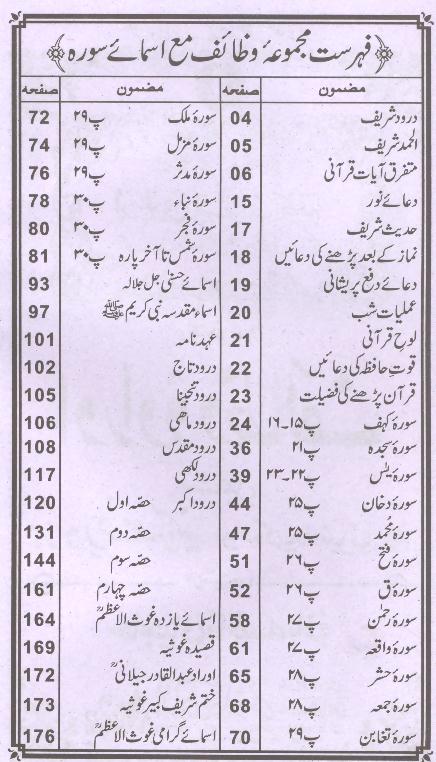 فہرست مجموعۂ وظائف مع اسمائے سورہ
مضمون صفحہ مضمون صفحہ
درود شریف 04 سورۂ ملک پ ۲۹ 72
الحمد شریف 05 سورۂ مزمل پ ۲۹ 74
متفرق آیات قرآنی 06 سورۂ مدثر پ ۲۹ 76
دعائے نور 15 سورۂ نباء پ ۳۰ 78
حدیث شریف 17 سورۂ فجر پ ۳۰ 80
نماز کے بعد پڑھنے کی دعائیں 18 سورۂ شمس تا آخر پارہ پ ۳۰ 81
دعائے دفع پریشانی 19 اسمائے حسنٰی جل جلالہ 93
عملیات شب 20 اسماء مقدسہ نبی کریم ﷺ 97
لوح قرآنی 21 عہد نامہ 101
قوت حافظہ کی دعائیں 22 درود تاج 102
قرآن پڑھنے کی فضیلت 23 درود تنجینا 105
سورۂ کہف پ ۱۵۔۱۶ 24 درود ماھی 106
سورۂ سجدہ پ ۲۱ 36 درود مقدس 108
سورۂ یٰس پ ۲۲۔۲۳ 39 درود لکھی 117
سورۂ دخان پ ۲۵ 44 درود اکبر حصّہ اول 120
سورۂ محمد پ ۲۵ 47 حصّہ دوم 131
سورۂ فتح پ ۲۶ 51 حصّہ سوم 144
سورۂ ق پ ۲۶ 52 حصّہ چہارم 161
سورۂ رحمٰن پ ۲۷ 58 اسمائے یازدہ غوث الاعظمؒ 164
سورۂ واقعہ پ ۲۷ 61 قصیدہ غوثیہ 169
سورۂ حشر پ ۲۸ 65 اوراد عبدالقادر جیلانیؒ 172
سورۂ جمعہ پ ۲۸ 68 ختم شریف کبیر غوثیہ 173
سورۂ تغابن پ ۲۹ 70 اسمائے گرامی غوث الاعظمؒ 176